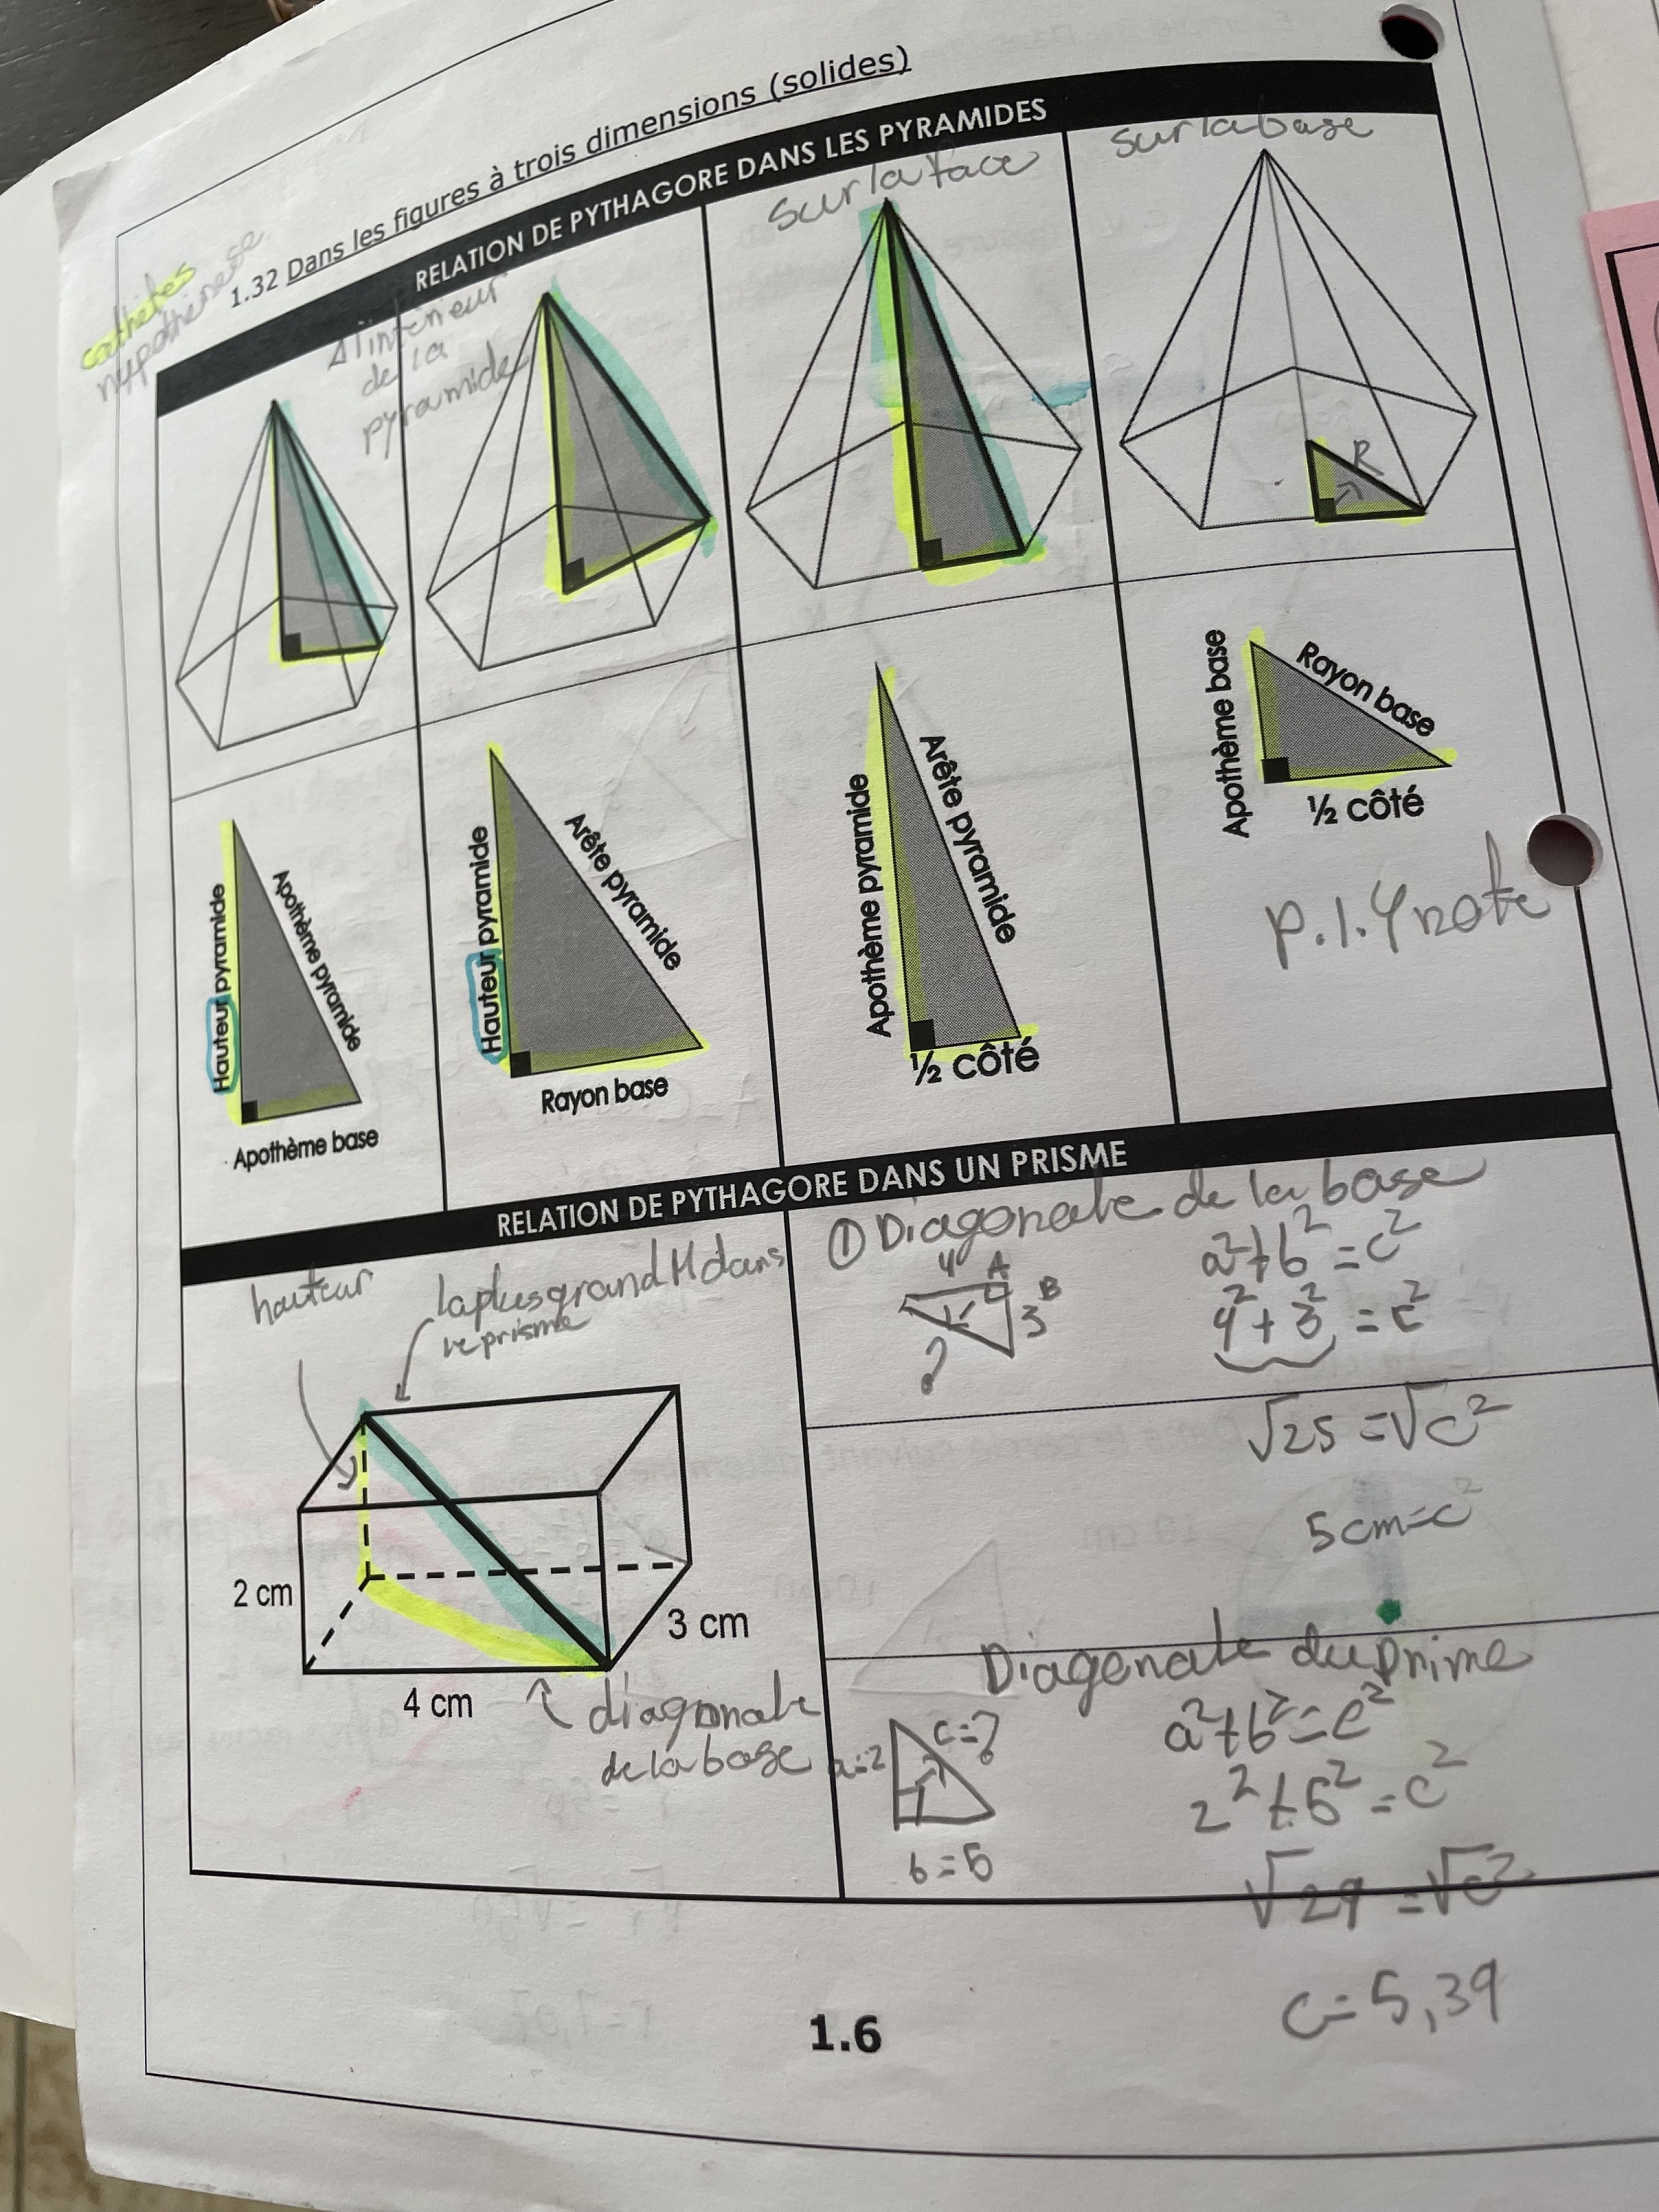 1.32 Dans les figures à trois dimensions (solides)
cathètes
hypothénuse
RELATION DE PYTHAGORE DANS LES PYRAMIDES
À l'intérieur
de la
pyramide
sur la face
sur la base
R
Hauteur pyramide
Apothème pyramide
Apothème base
Hauteur pyramide
Arête pyramide
Rayon base
Apothème pyramide
Arête pyramide
½ côté
Apothème base
Rayon base
½ côté
p.1.4 note
RELATION DE PYTHAGORE DANS UN PRISME
hauteur
la plus grand H dans
le prisme
2 cm
4 cm
3 cm
diagonale
de la base
① Diagonale de la base
4 A
3 B
?
a²+b²=c²
4²+3²=c²
√25=√c²
5cm=c²
Diagonale du prime
a=2
c=?
b=5
a²+b²=c²
2²+5²=c²
√29=√c²
c=5,39
1.6